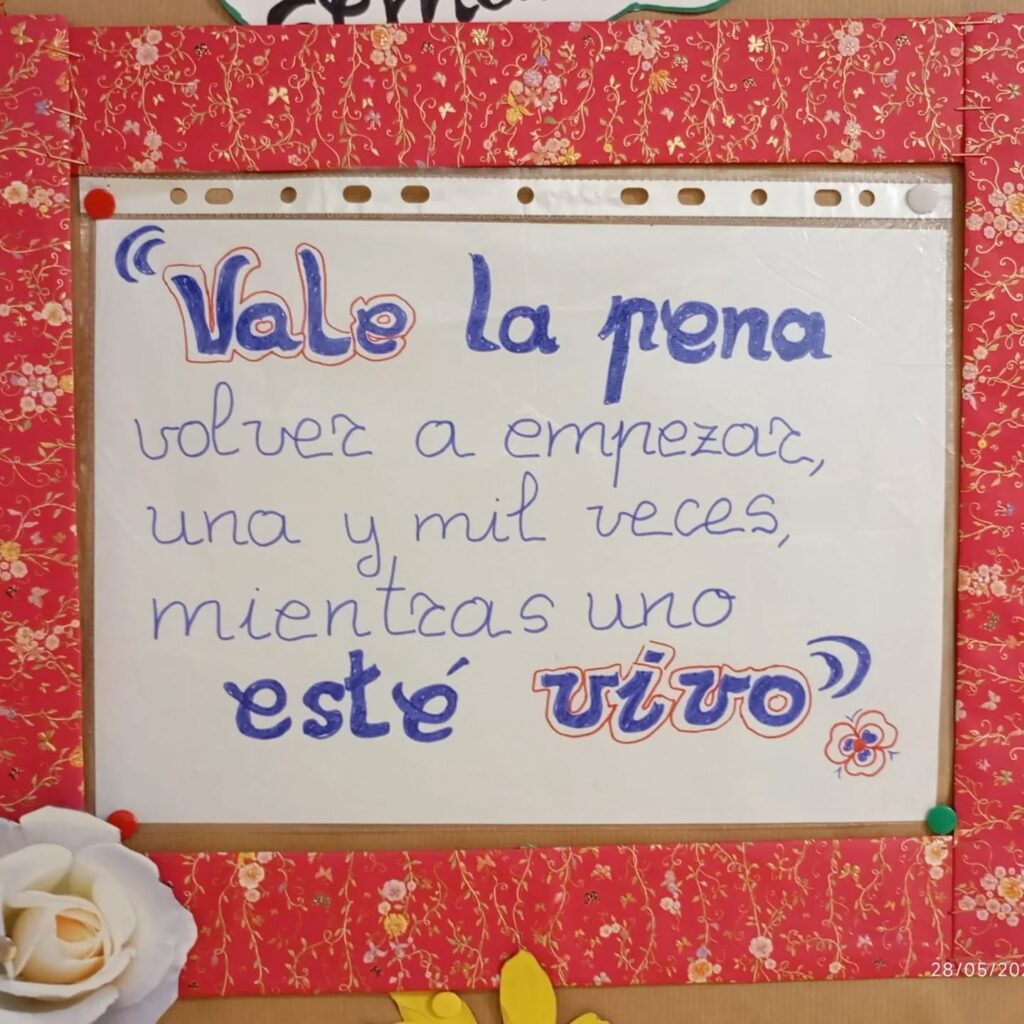 “Vale la pena
volver a empezar,
una y mil veces,
mientras uno
esté vivo”
28/05/202